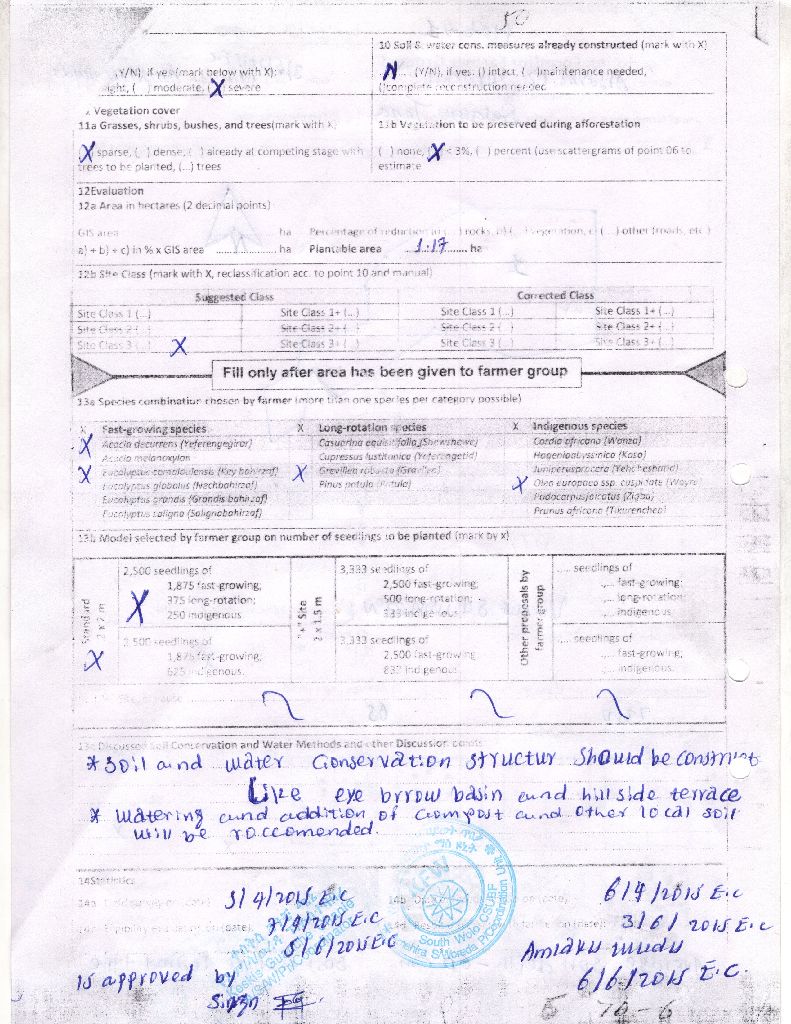 50
10 Soil & water cons. measures already constructed (mark with X)
(Y/N), if yes (mark below with X):
N (Y/N), if yes: () intact, ( ) maintenance needed,
( ) moderate, (X) severe
( ) complete reconstruction needed
Vegetation cover
11a Grasses, shrubs, bushes, and trees(mark with X)
11b Vegetation to be preserved during afforestation
(X) sparse, ( ) dense, ( ) already at competing stage with
trees to be planted, (...) trees
( ) none, (X) < 3%, ( ) percent (use scattergrams of point 06 to
estimate
12Evaluation
12a Area in hectares (2 decimal points)
GIS area ha Percentage of reduction a) (...) rocks, b) (...) vegetation, c) (...) other (roads, etc.)
a) + b) + c) in % x GIS area ............ ha Plantable area ...1.17... ha
12b Site Class (mark with X, reclassification acc. to point 10 and manual)
Suggested Class Corrected Class
Site Class 1 (...) Site Class 1+ (...) Site Class 1 (...) Site Class 1+ (...)
Site Class 2 (...) Site Class 2+ (...) Site Class 2 (...) Site Class 2+ (...)
Site Class 3 (...) X Site Class 3+ (...) Site Class 3 (...) Site Class 3+ (...)
Fill only after area has been given to farmer group
13a Species combination chosen by farmer (more than one species per category possible)
X Fast-growing species X Long-rotation species X Indigenous species
X Acacia decurrens (Yeferengegirar) Casuarina equisitifolia (Shewshewe) Cordia africana (Wanza)
Acacia melanoxylon Cupressus lusitanica (Yeferengetid) Hageniaabyssinica (Koso)
X Eucalyptus camaldulensis (Key bahirzaf) X Grevillea robusta (Gravilea) Juniperusprocera (Yehabeshatid)
Eucalyptus globulus (Nechbahirzaf) Pinus patula (Patula) X Olea europaea ssp. cuspidate (Weyra
Eucalyptus grandis (Grandis bahirzaf) Podocarpusfalcatus (Zigba)
Eucalyptus saligna (Salignabahirzaf) Prunus africana (Tikurenchet)
13b Model selected by farmer group on number of seedlings to be planted (mark by x)
Standard
2 x 2 m
X
2,500 seedlings of
1,875 fast-growing,
X 375 long-rotation;
250 indigenous
2,500 seedlings of
1,875 fast-growing,
625 indigenous.
"+" Site
2 x 1.5 m
3,333 seedlings of
2,500 fast-growing,
500 long-rotation;
333 indigenous
3,333 seedlings of
2,500 fast-growing
833 indigenous.
Other proposals by
farmer group
.... seedlings of
.... fast-growing;
.... long-rotation
.... indigenous
.... seedlings of
.... fast-growing,
.... indigenous.
13c Discussed Soil Conservation and Water Methods and other Discussion points
* Soil and water Conservation structur should be construct
Like eye brrow basin and hill side terrace
* watering and addition of compost and other local soil
will be roccomended.
14Statistics
3/4/2015 E.C
6/4/2015 E.C
7/4/2015 E.C
3/6/2015 E.C
5/6/2015 E.C
6/6/2015 E.C.
is approved by
Sign
KFW
South Wolo CSURF
5 70-6